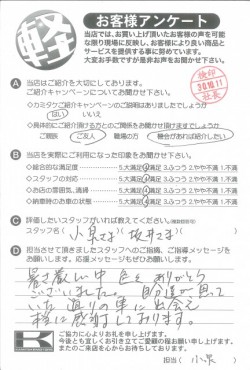 軽
お客様アンケート
当店では、お買い上げ頂いたお客様の声を可能な
限り現場に反映し、お客様により良い商品と
サービスを提供する事に努めています。
大変お手数ですが是非お声をお聞かせ下さい。
検印
30.10.11
社長
A 当店はご紹介を大切にしております。
ご紹介キャンペーンについてお聞かせ下さい。
◇カミタケご紹介キャンペーンのご説明はありましたでしょうか
はい いいえ
◇具体的にご紹介頂ける方とのご関係をお聞かせ頂けますでしょうか
ご親戚 ご友人 職場の方 機会があれば紹介したい
B 当店を実際にご利用になった印象をお聞かせ下さい。
◇総合的な満足度 5大満足 4満足 3ふつう 2やや不満 1不満
◇スタッフの対応 5大満足 4満足 3ふつう 2やや不満 1不満
◇お店の雰囲気、清掃 5大満足 4満足 3ふつう 2やや不満 1不満
◇納車時のお車の状態 5大満足 4満足 3ふつう 2やや不満 1不満
C 評価したいスタッフがいれば教えてください。
スタッフ名( 小泉さま 坂井さま )
D 担当させて頂きましたスタッフへのご指摘、ご指導メッセージをお
願いします。応援メッセージもぜひお願いします。
暑さ厳しい中 色々ありがとう
ございました。
いた通りの車に出会え
感謝しております。
K
ご協力に心よりお礼を申し上げます。
今後とも宜しくお引き立てご愛顧の程お願い申し上げます。
またのご来店を心からお待ちしております。
担当( 小泉 )